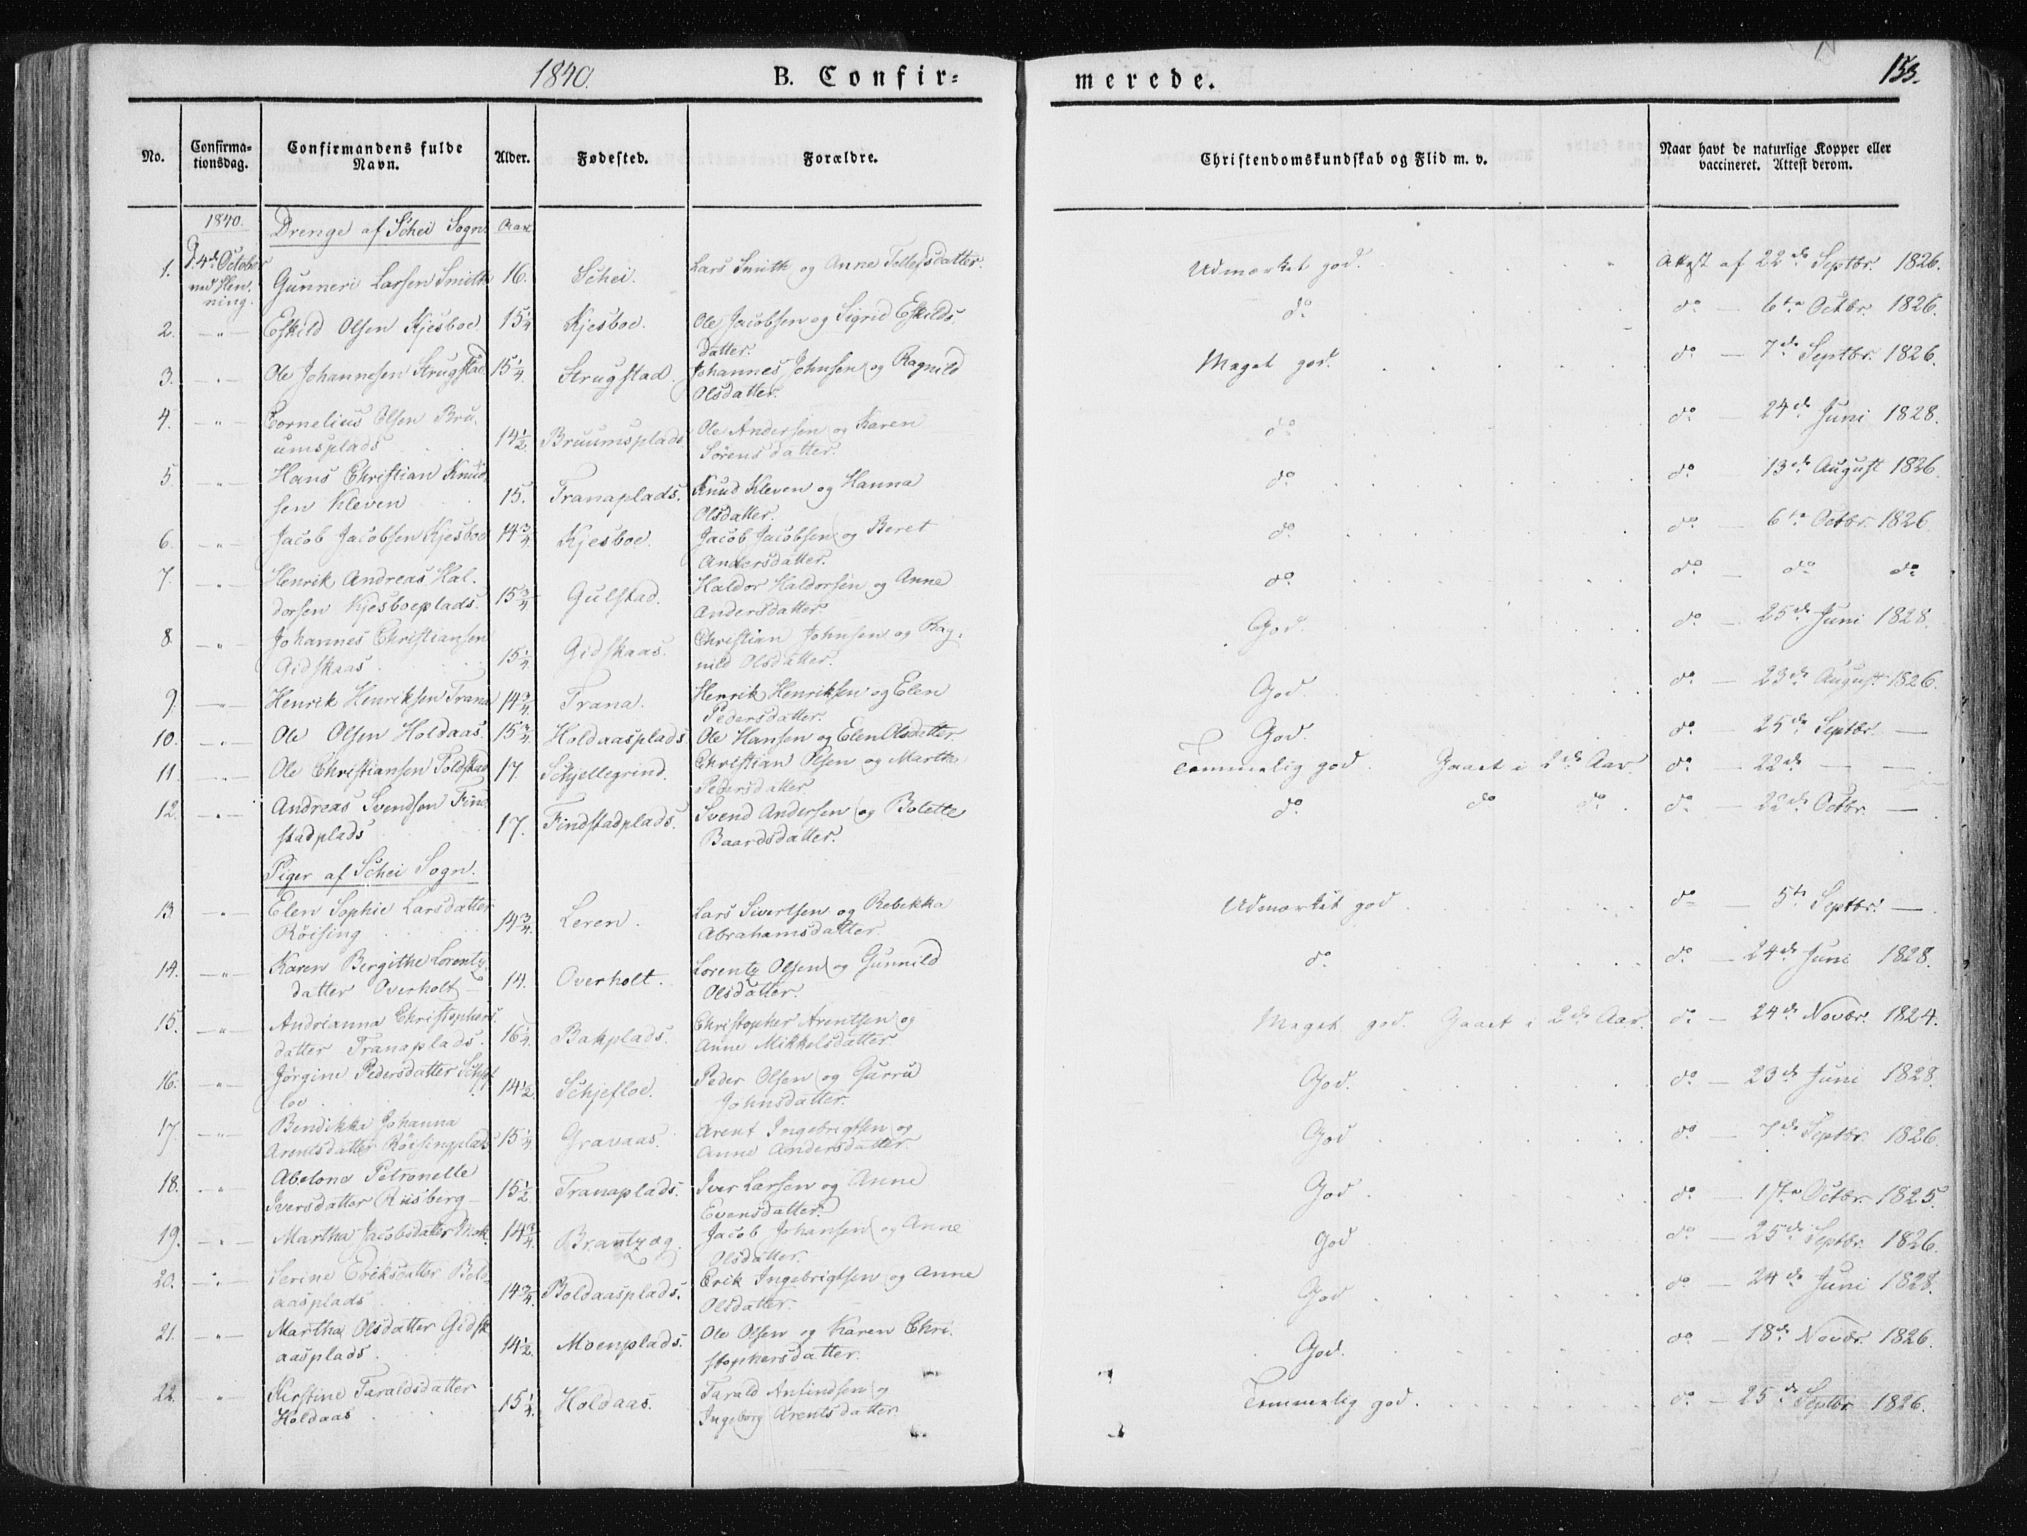 1840. B. Confir= merede. 153.
No. Confirma-tionsdag. Confirmandens fulde Navn. Alder. Fødested. Forældre. Christendomskundskab og Flid m. v. Naar havt de naturlige Kopper eller vaccineret. Attest derom.
1840. Drenge af Schei Sogn. Aar
1. d. 4de October ved Hen-ning. Gunneri Larsen Smith 16. Schei. Lars Smith og Anne Tollefsdatter. Udmærket god. Attest af 22de Septbr. 1826.
2. -"- Eskild Olsen Kjesboe. 15 1/4. Kjesboe. Ole Jacobsen og Sigrid Eskilds-
datter. do do — 6te Octbr. 1826.
3. -"- Ole Johannesen Strugstad 15 1/4. Strugstad. Johannes Johnsen og Ragnild
Olsdatter. Meget god. do — 7de Septbr. 1826.
4. -"- Cornelius Olsen Bru-
umsplads 14 1/2. Bruumsplads Ole Andersen og Karen
Sørensdatter. do do — 24de Juni 1828.
5 -"- Hans Christian Knud-
sen Kleven 15. Tranaplads. Knud Kleven og Hanna
Olsdatter. do do — 13de August 1826.
6. -"- Jacob Jacobsen Kjesboe 14 3/4. Kjesboe. Jacob Jacobsen og Beret
Andersdatter. do do — 6te Octbr. 1826.
7. -"- Henrik Andreas Hal-
dorsen Kjesboeplads. 15 3/4. Gulstad. Haldor Haldorsen og Anne
Andersdatter. do do — do do
8 -"- Johannes Christiansen
Gidskaas 15 1/4. Gidskaas. Christian Johnsen og Rag-
nild Olsdatter. God. do — 25de Juni 1828.
9. -"- Henrik Henriksen Trana 14 3/4. Trana. Henrik Henriksen og Elen
Pedersdatter. God. do — 23de August 1826.
10. -"- Ole Olsen Holdaas. 15 3/4. Holdaasplads Ole Hansen og Elen Olsdatter God. do — 25de Septbr. —
11. -"- Ole Christiansen Foldstad 17. Schjellegrind. Christian Olsen og Martha
Pedersdatter Temmelig god. Gaaet i 2de Aar. do — 22de — —
12. -"- Andreas Svendsen Find-
stadplads 17. Findstadplads. Svend Andersen og Bolette
Baardsdatter. do do do do — 22de Octbr. —
Piger af Schei Sogn.
13. -"- Elen Sophie Larsdatter
Røising 14 3/4. Leren. Lars Sivertsen og Rebekka
Abrahamsdatter Udmærket god do — 5te Septbr. —
14. -"- Karen Bergithe Lorentz-
datter Overholt 14. Overholt. Lorentz Olsen og Gunnild
Olsdatter. do do — 24de Juni 1828.
15. -"- Andrianna Christophers-
datter Tranaplads. 16 1/4. Bakplads. Christopher Arentsen og
Anne Mikkelsdatter Meget god. Gaaet i 2de Aar. do — 24de Novbr. 1824.
16. -"- Jørgine Pedersdatter Schjef-
loe 14 1/2. Schjefloe. Peder Olsen og Gurru
Johnsdatter. God. do — 23de Juni 1828.
17 -"- Bendikka Johanna
Arentsdatter Røisingplads 15 1/4. Gravaas. Arent Ingebrigtsen og
Anne Andersdatter. God do — 7de Septbr. 1826.
18. -"- Abelone Petronelle
Iversdatter Riisberg 15 1/2. Tranaplads. Iver Larsen og Anne
Evensdatter. God do — 17te Octbr. 1825.
19. -"- Martha Jacobsdatter Mok. 14 3/4. Brantzæg. Jacob Johansen og Anne
Olsdatter. God do — 25de Septbr. 1826.
20. -"- Serine Eriksdatter Bold-
aasplads 14 3/4. Boldaasplads. Erik Ingebrigtsen og Anne
Olsdatter. God do — 24de Juni 1828.
21. -"- Martha Olsdatter Gidsk-
aasplads. 14 1/2. Moenplads. Ole Olsen og Karen Chri-
stophersdatter. God. do — 18de Novbr. 1826.
22. -"- Kirstine Taraldsdatter
Holdaas 15 1/4. Holdaas. Tarald Anfindsen og
Ingeborg Arentsdatter Temmelig god. do — 25de Septbr 1826.